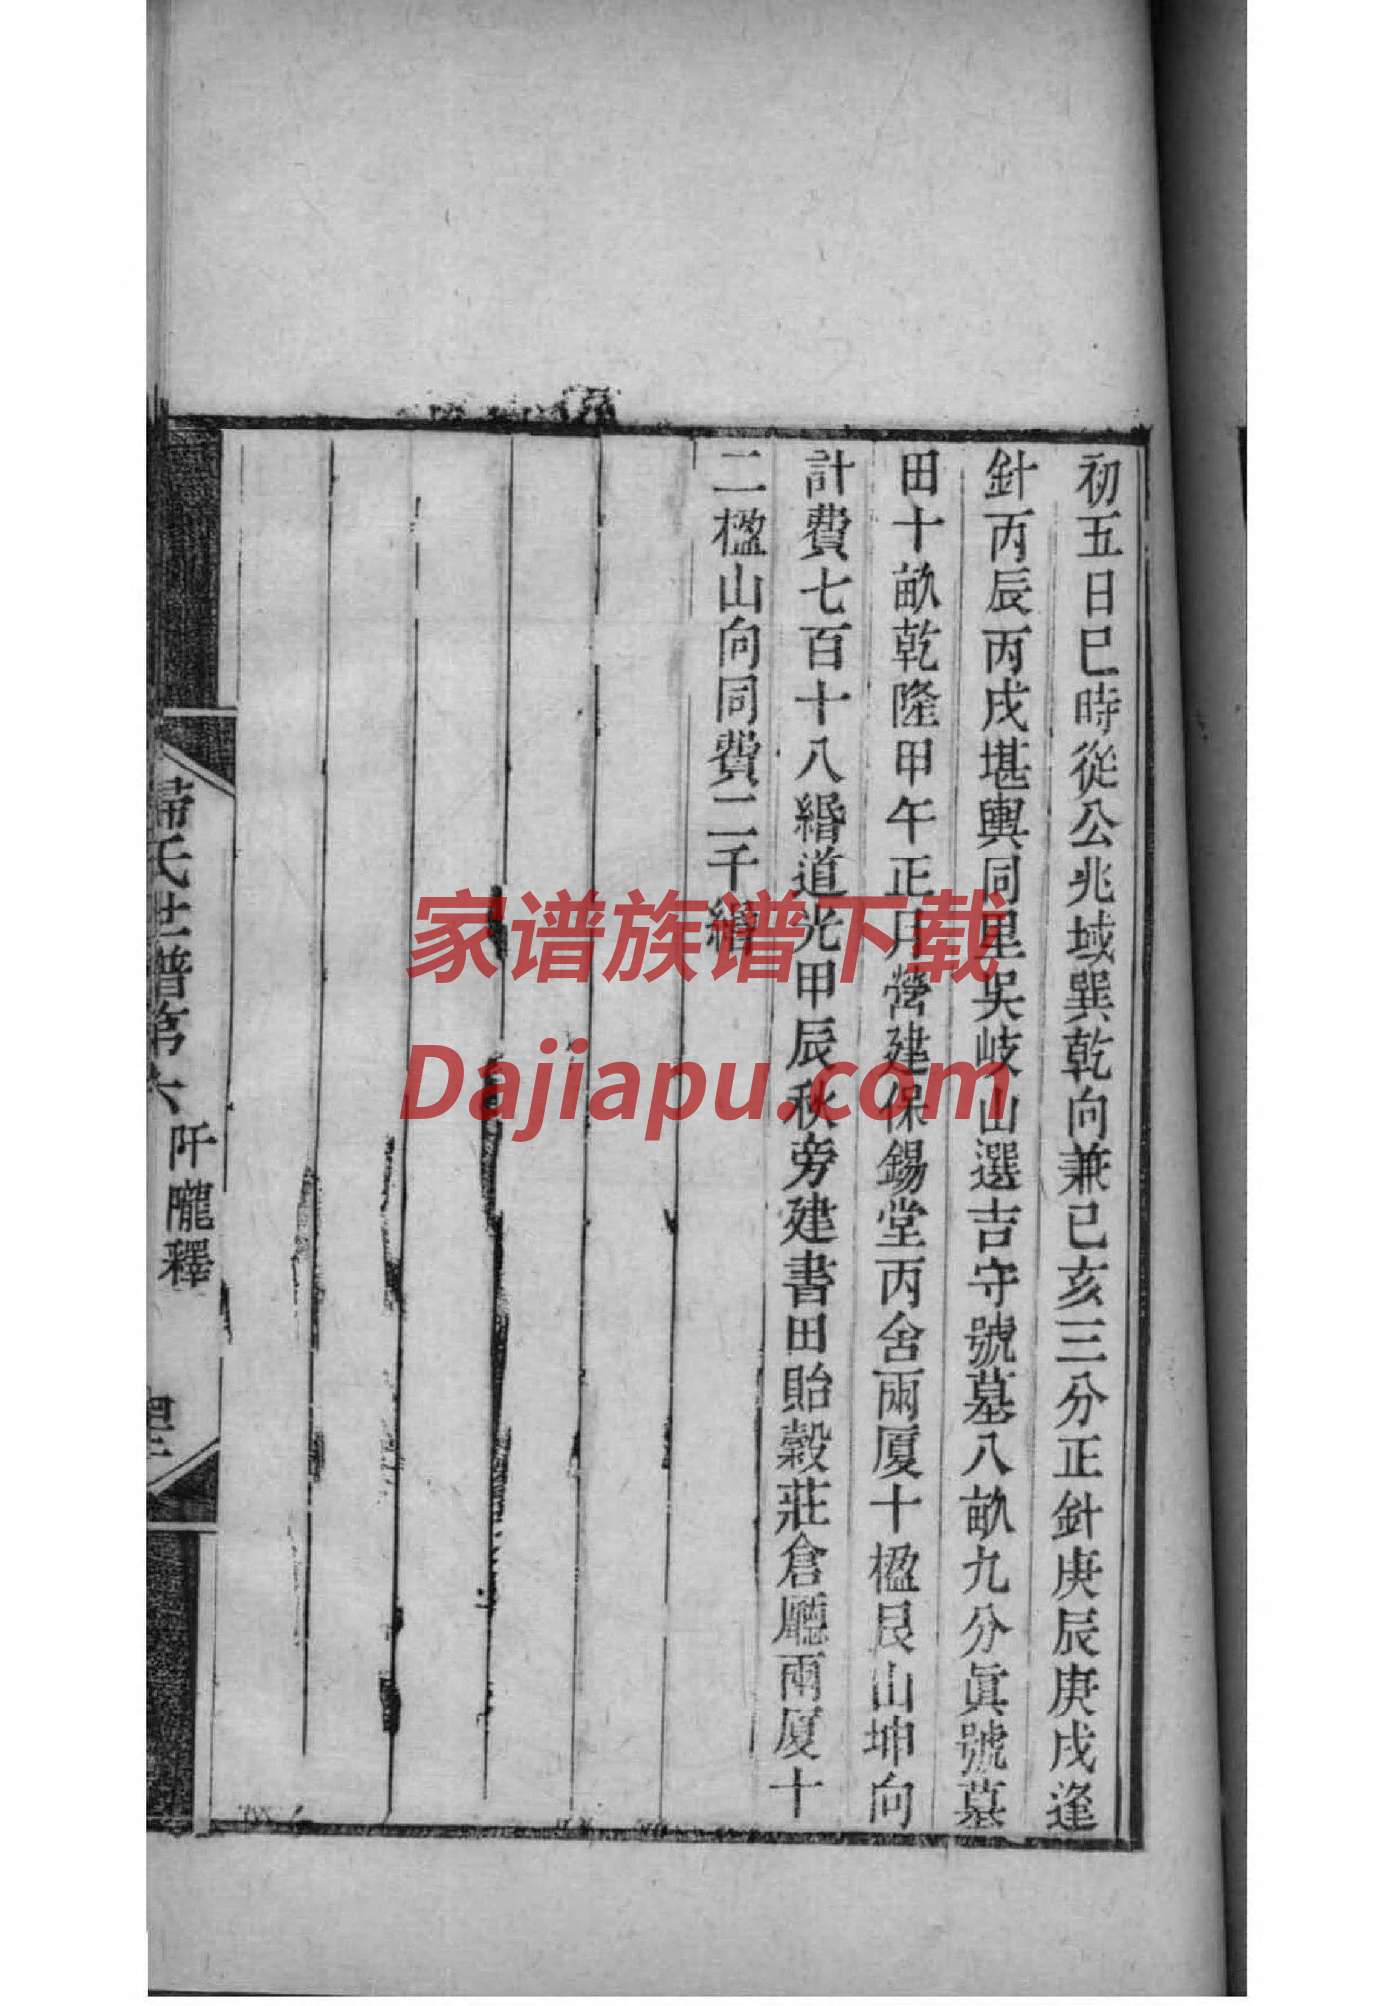 初五日巳時從公兆域巽乾向兼己亥三分正針庚辰庚戌逢
針丙辰丙戌堪輿同里吳岐山選吉守號墓八畝九分眞號墓
田十畝乾隆甲午正月營建保錫堂丙舍兩厦十楹艮山坤向
計費七百十八緡道光甲辰秋旁建書田貽穀莊倉廳兩厦十
二楹山向同費二千緡
歸氏世譜第六 阡隴釋
家谱族谱下载
Dajiapu.com